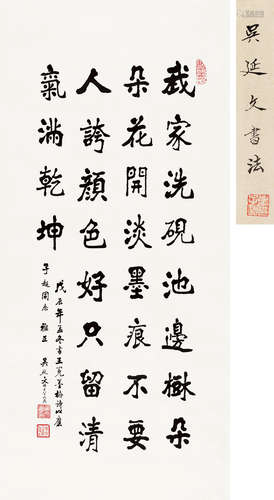 吳延文書法
我家洗硯池邊樹朵
朵花開淡墨痕不要
人誇顏色好只留清
氣滿乾坤
戊辰年孟冬書王冕墨梅詩以應
同志雅正
吳延文